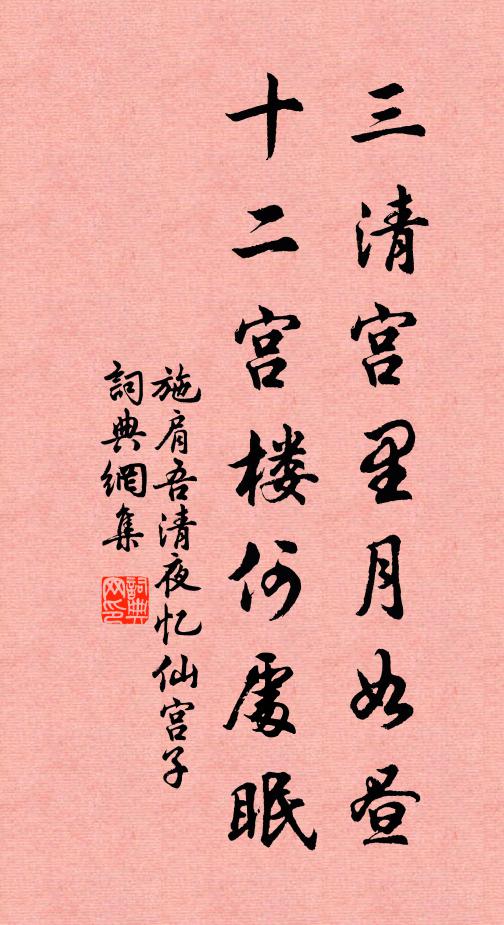 三清宫里月如昼
十二宫楼何處眠
施肩吾清夜忆仙宫子
詞典網集
詞典网印